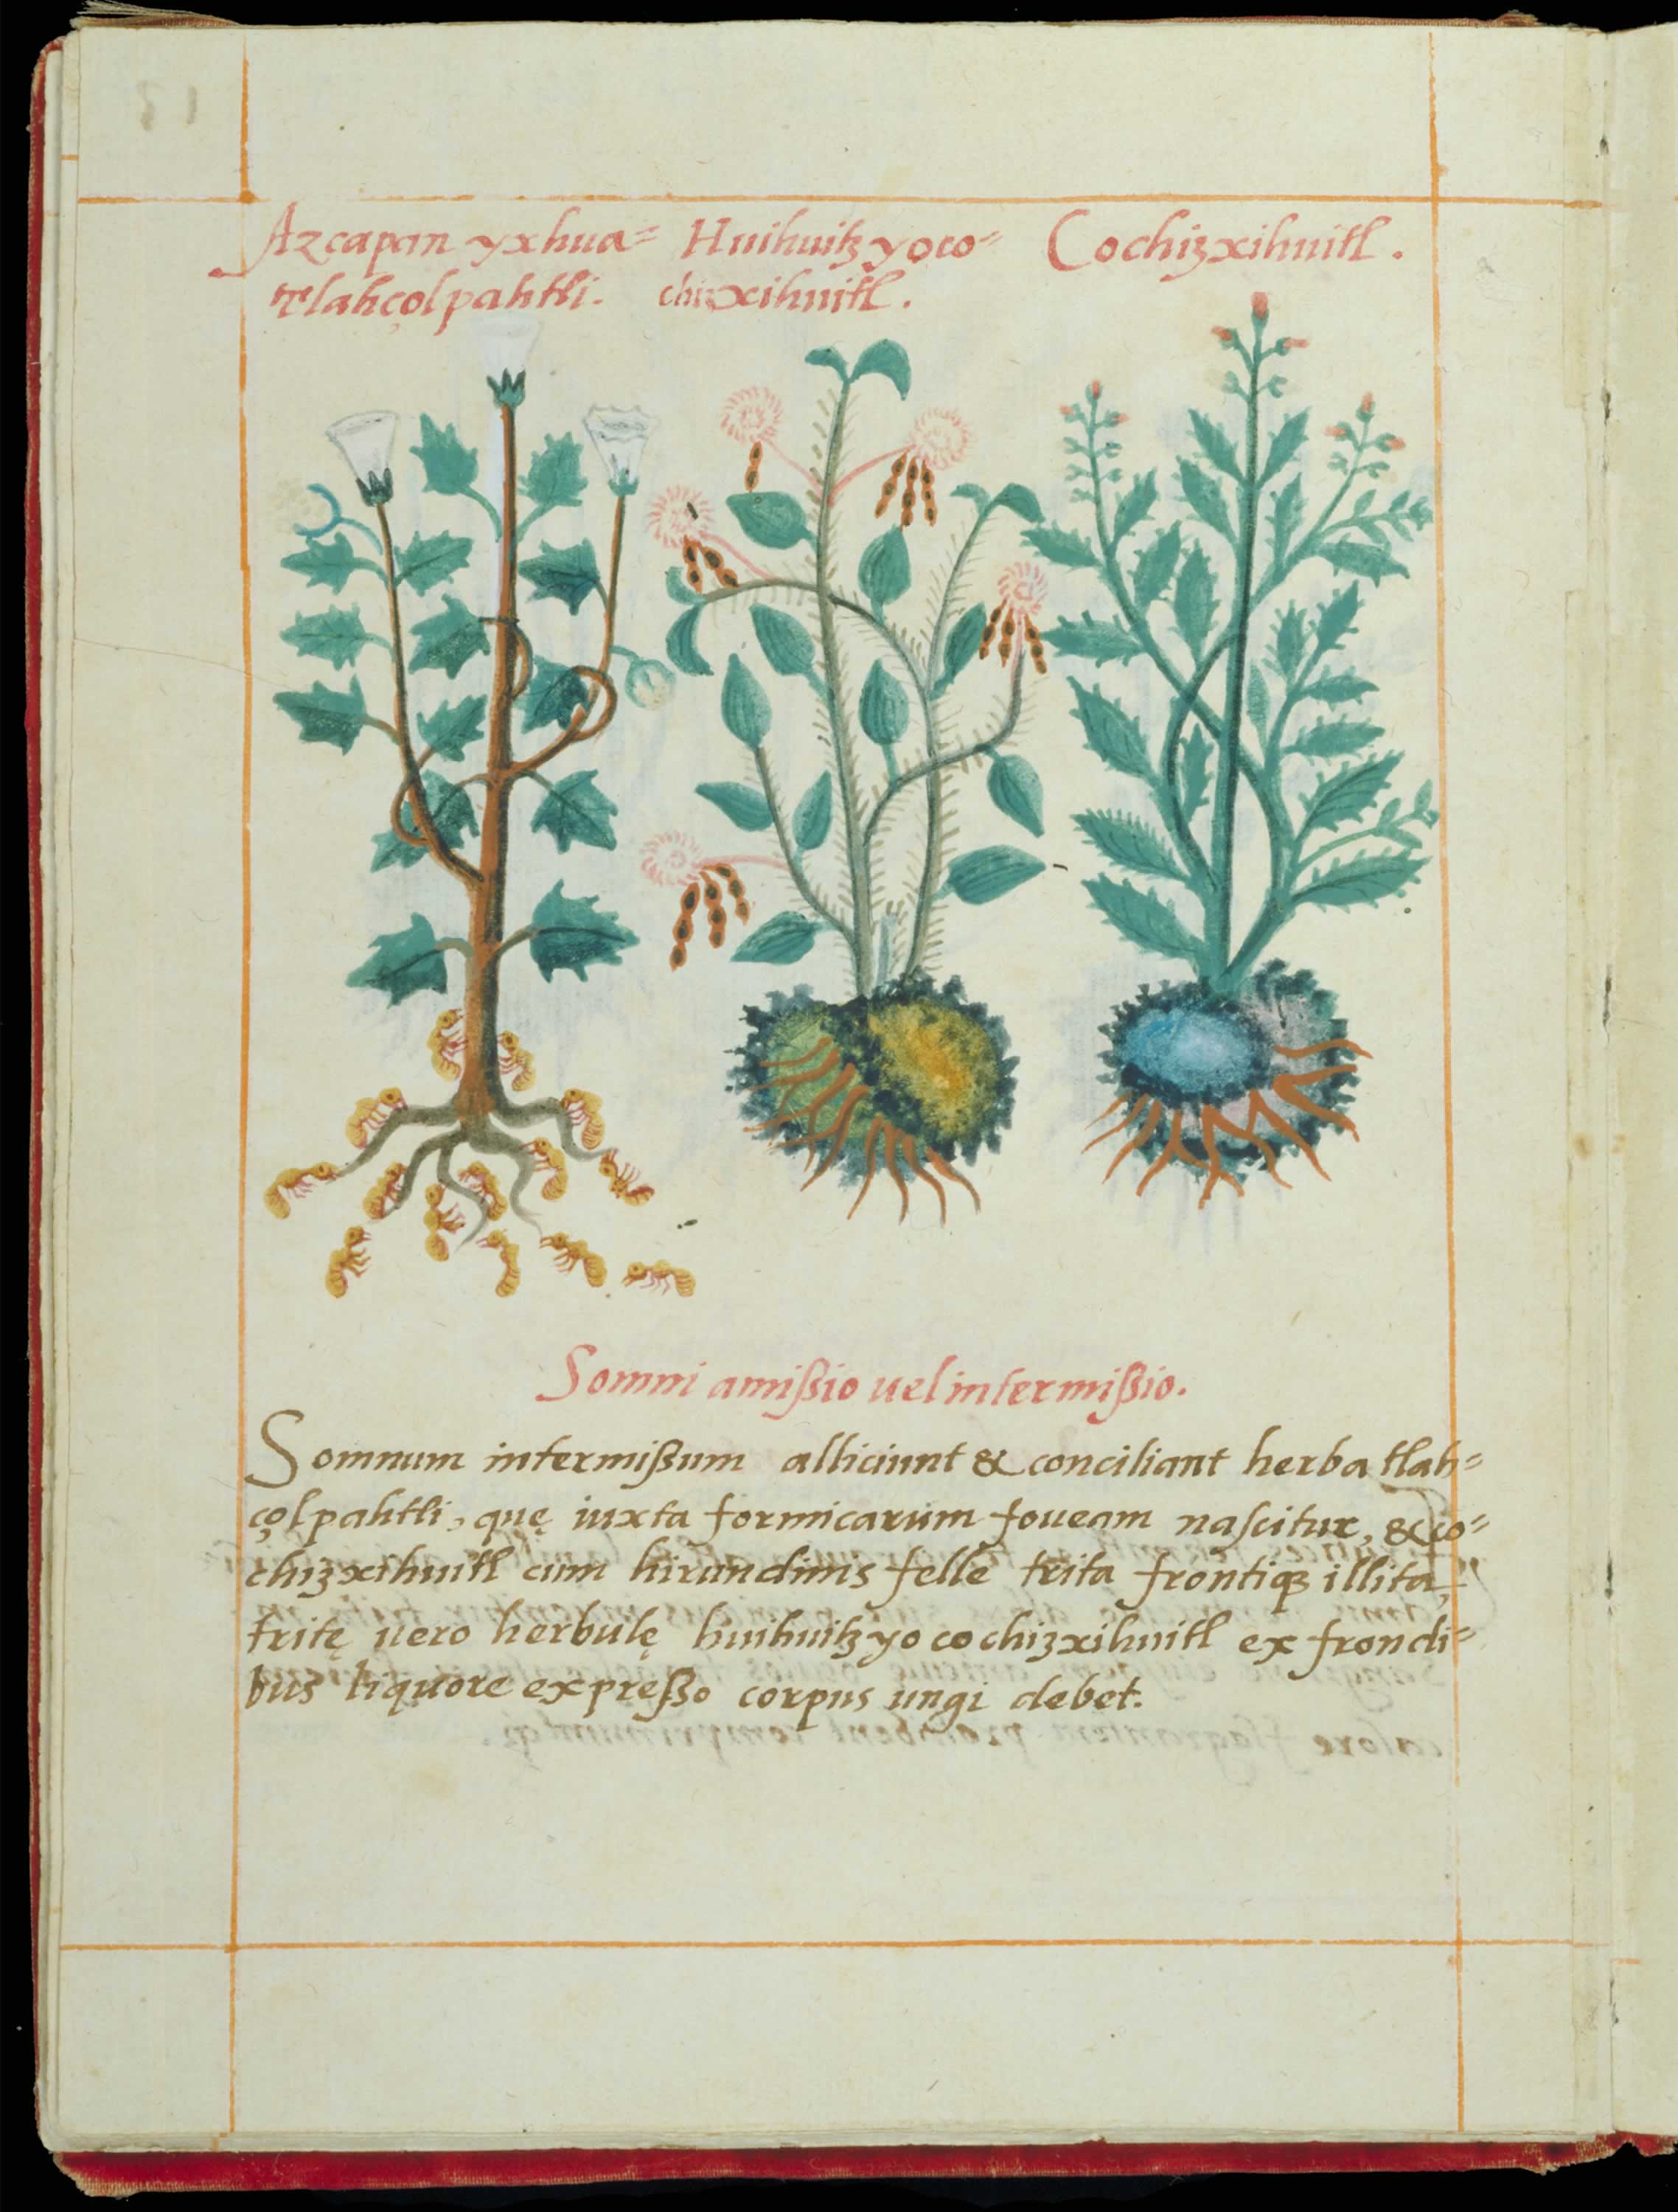 Azcapan yxhua= Huihuitzyoco= Cochizxihuitl.
tlahçolpahtli. chizxihuitl.
Somni amißio uel intermißio.
Somnum intermißum alliciunt & conciliant herba tlah=
çolpahtli, quę iuxta formicarum foueam naſcitur, & co=
chizxihuitl cum hirundinis felle trita frontiqꝫ illita,
tritę uero herbulę huihuitzyocochizxihuitl ex frondi=
bus liquore expreßo corpus ungi debet.